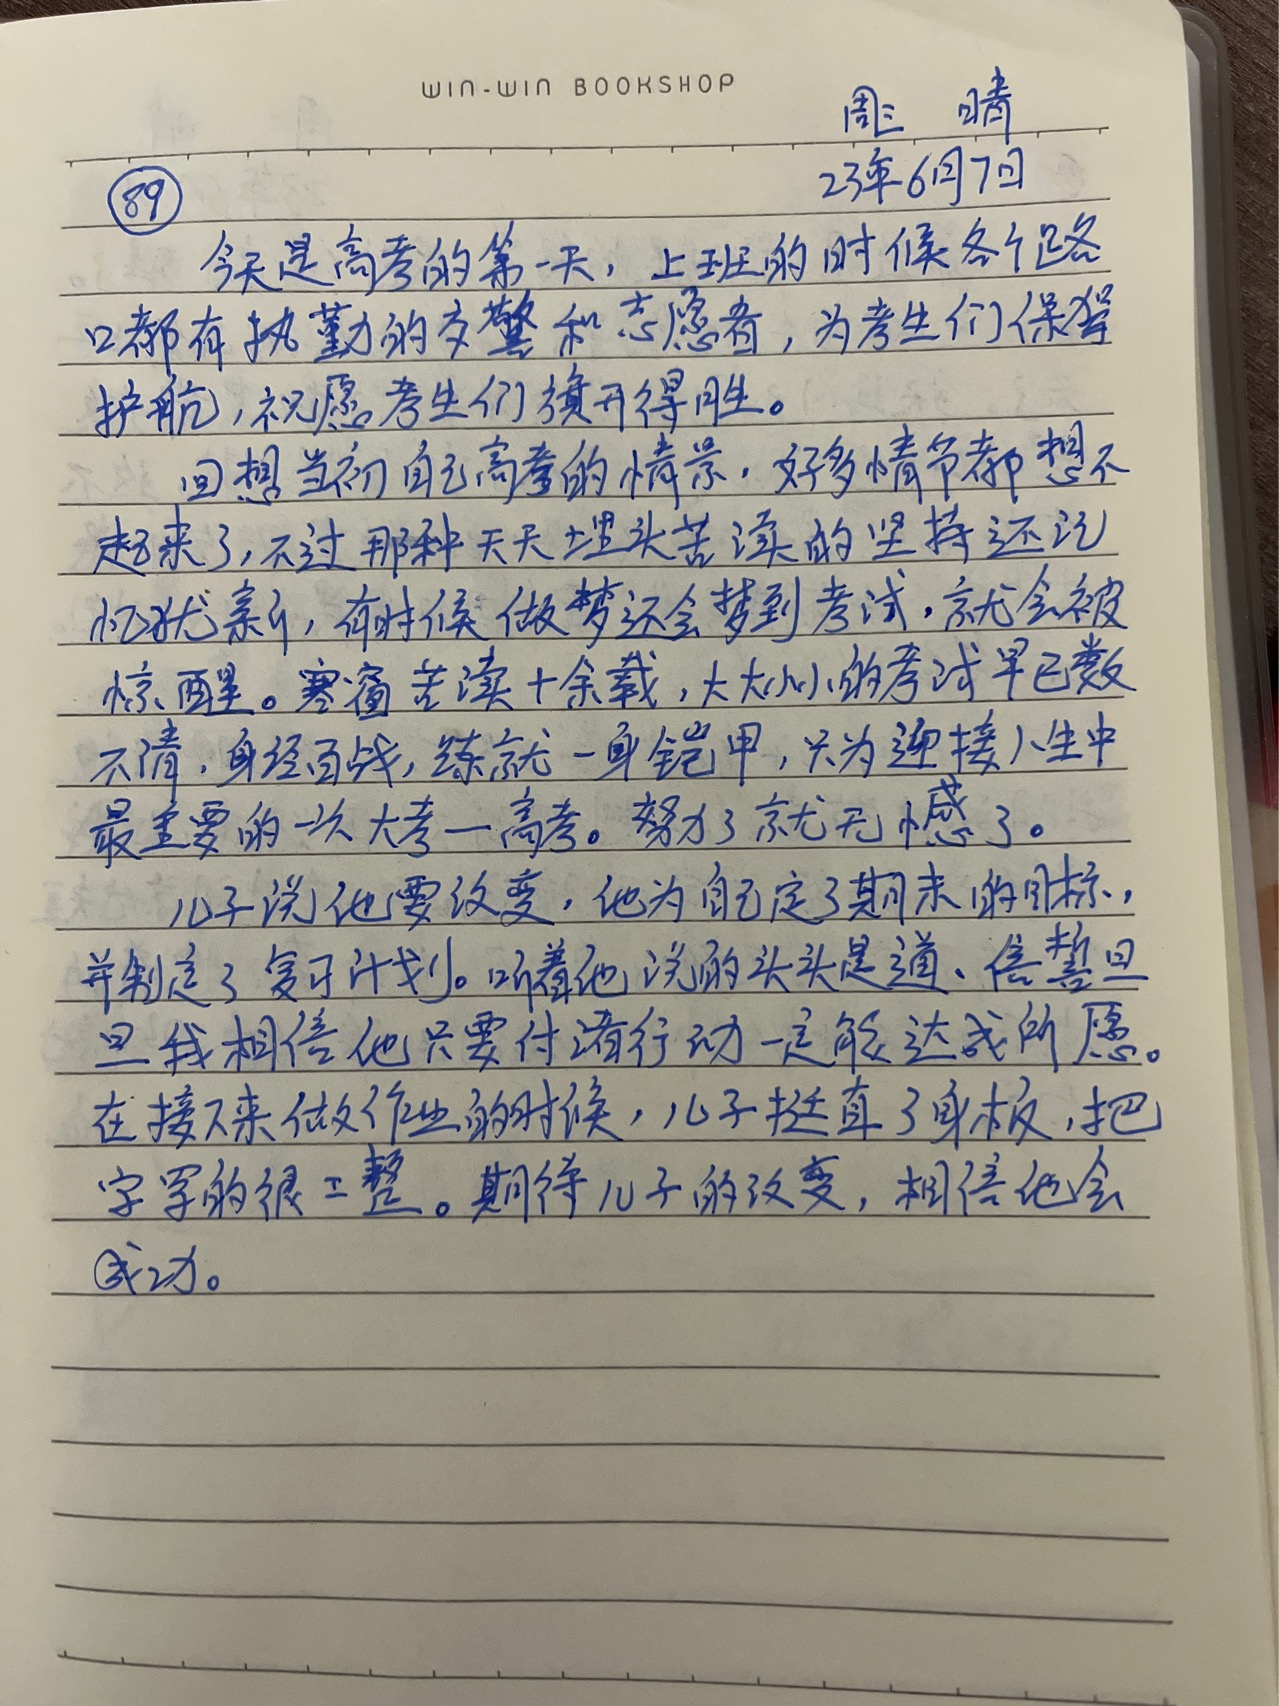 WIN-WIN BOOKSHOP
周三 晴
23年6月7日
89
今天是高考的第一天，上班的时候各个路
口都有执勤的交警和志愿者，为考生们保驾
护航，祝愿考生们旗开得胜。
回想当初自己高考的情景，好多情节都想不
起来了，不过那种天天埋头苦读的坚持还记
忆犹新，有时候做梦还会梦到考试，就会被
惊醒。寒窗苦读十余载，大大小小的考试早已数
不清，身经百战，练就一身铠甲，只为迎接人生中
最重要的一次大考—高考。努力了就无憾了。
儿子说他要改变，他为自己定了期末的目标，
并制定了复习计划。听着他说的头头是道、信誓旦
旦我相信他只要付诸行动一定能达成所愿。
在接下来做作业的时候，儿子挺直了身板，把
字写的很工整。期待儿子的改变，相信他会
成功。